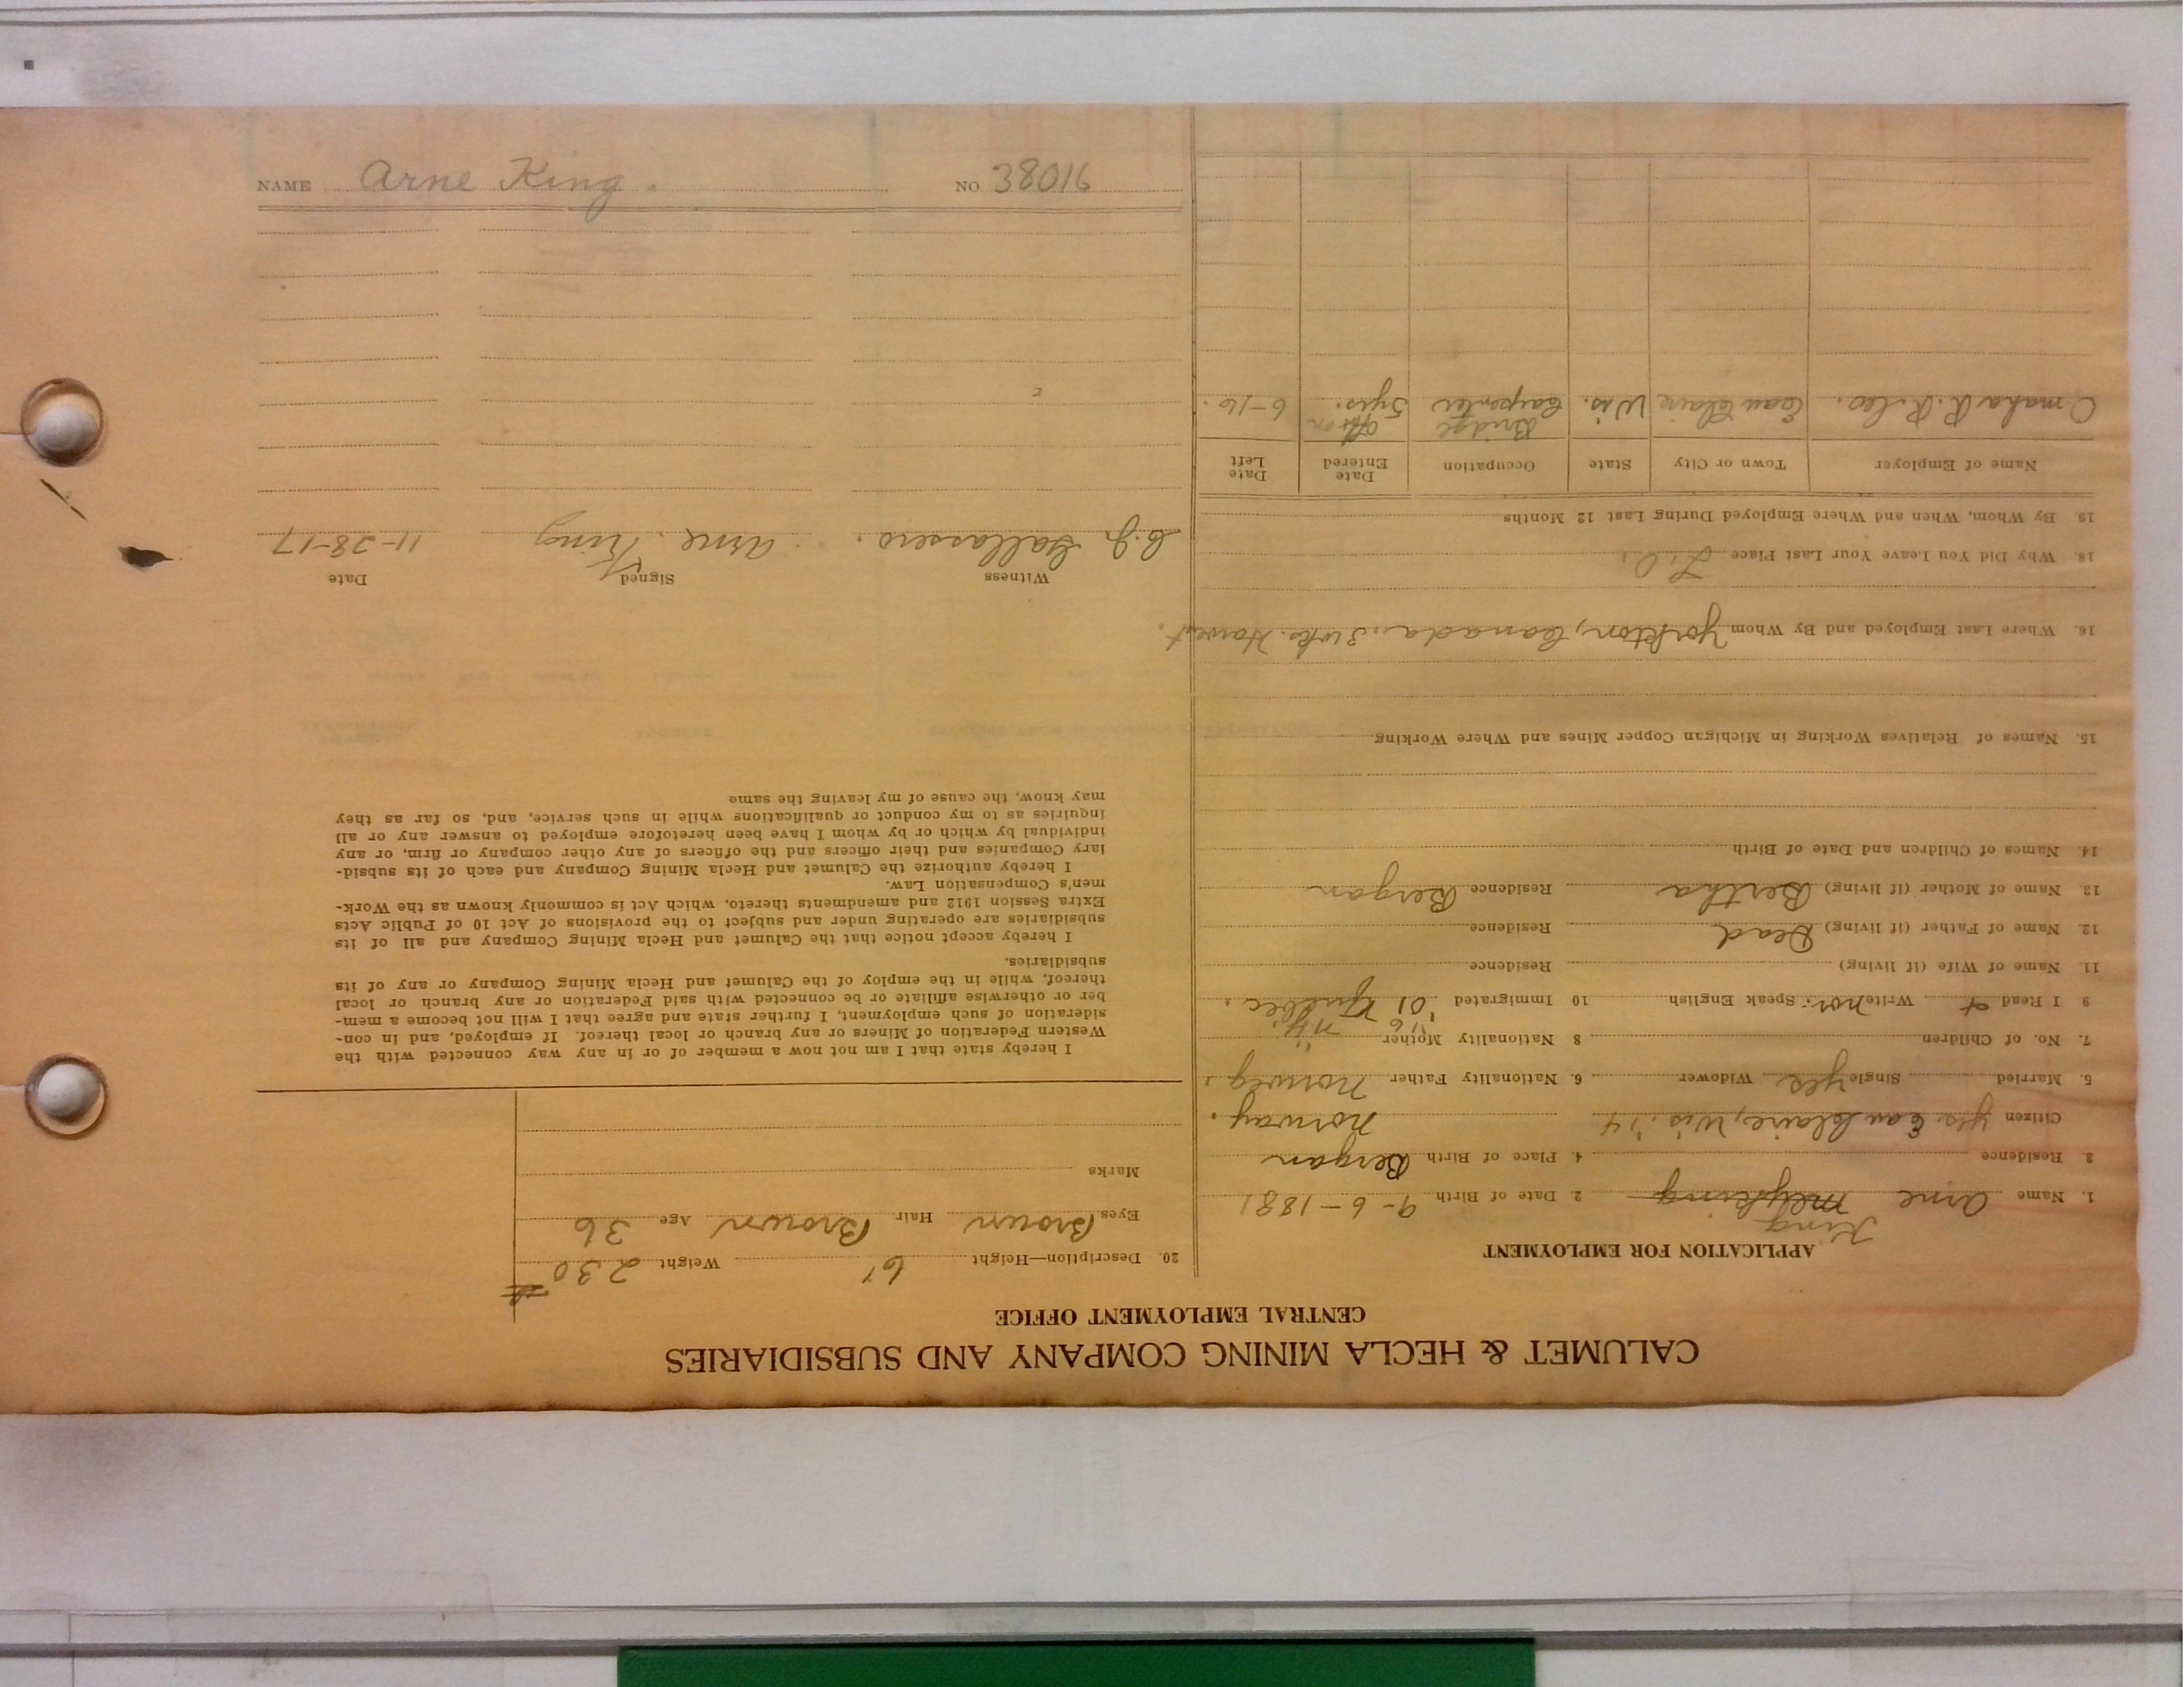 CALUMET & HECLA MINING COMPANY AND SUBSIDIARIES
CENTRAL EMPLOYMENT OFFICE
APPLICATION FOR EMPLOYMENT
King
1. Name Arne 2. Date of Birth 9-6-1881
3. Residence 4. Place of Birth Bergan
Citizen yes Eau Claire, Wis. '14 Norway.
5. Married Single yes Widower 6. Nationality Father Norweg.
7. No. of Children 8 Nationality Mother "
9 I Read & Write Nor. Speak English 10 Immigrated '01
11. Name of Wife (if living) Residence
12. Name of Father (if living) Dead Residence
13. Name of Mother (if living) Bertha Residence Bergan
14. Names of Children and Date of Birth
15. Names of Relatives Working in Michigan Copper Mines and Where Working
16. Where Last Employed and By Whom Yorkton, Canada. 3 wks. Harvest.
18. Why Did You Leave Your Last Place
19. By Whom, When and Where Employed During Last 12 Months
Name of Employer Town or City State Occupation Date Entered Date Left
Omaha R. R. Co. Eau Claire Wis. Bridge Carpenter off on 5 yrs. 6-16.
20. Description—Height 6' Weight 230 #
Eyes Brown Hair Brown Age 36
Marks
I hereby state that I am not now a member of or in any way connected with the
Western Federation of Miners or any branch or local thereof. If employed, and in con-
sideration of such employment, I further state and agree that I will not become a mem-
ber or otherwise affiliate or be connected with said Federation or any branch or local
thereof, while in the employ of the Calumet and Hecla Mining Company or any of its
subsidiaries.
I hereby accept notice that the Calumet and Hecla Mining Company and all of its
subsidiaries are operating under and subject to the provisions of Act 10 of Public Acts
Extra Session 1912 and amendments thereto, which Act is commonly known as the Work-
men's Compensation Law.
I hereby authorize the Calumet and Hecla Mining Company and each of its subsid-
iary Companies and their officers and the officers of any other company or firm, or any
individual by which or by whom I have been heretofore employed to answer any or all
inquiries as to my conduct or qualifications while in such service, and, so far as they
may know, the cause of my leaving the same
Witness Signed Date
Arne King 11-28-17
NAME Arne King. NO. 38016